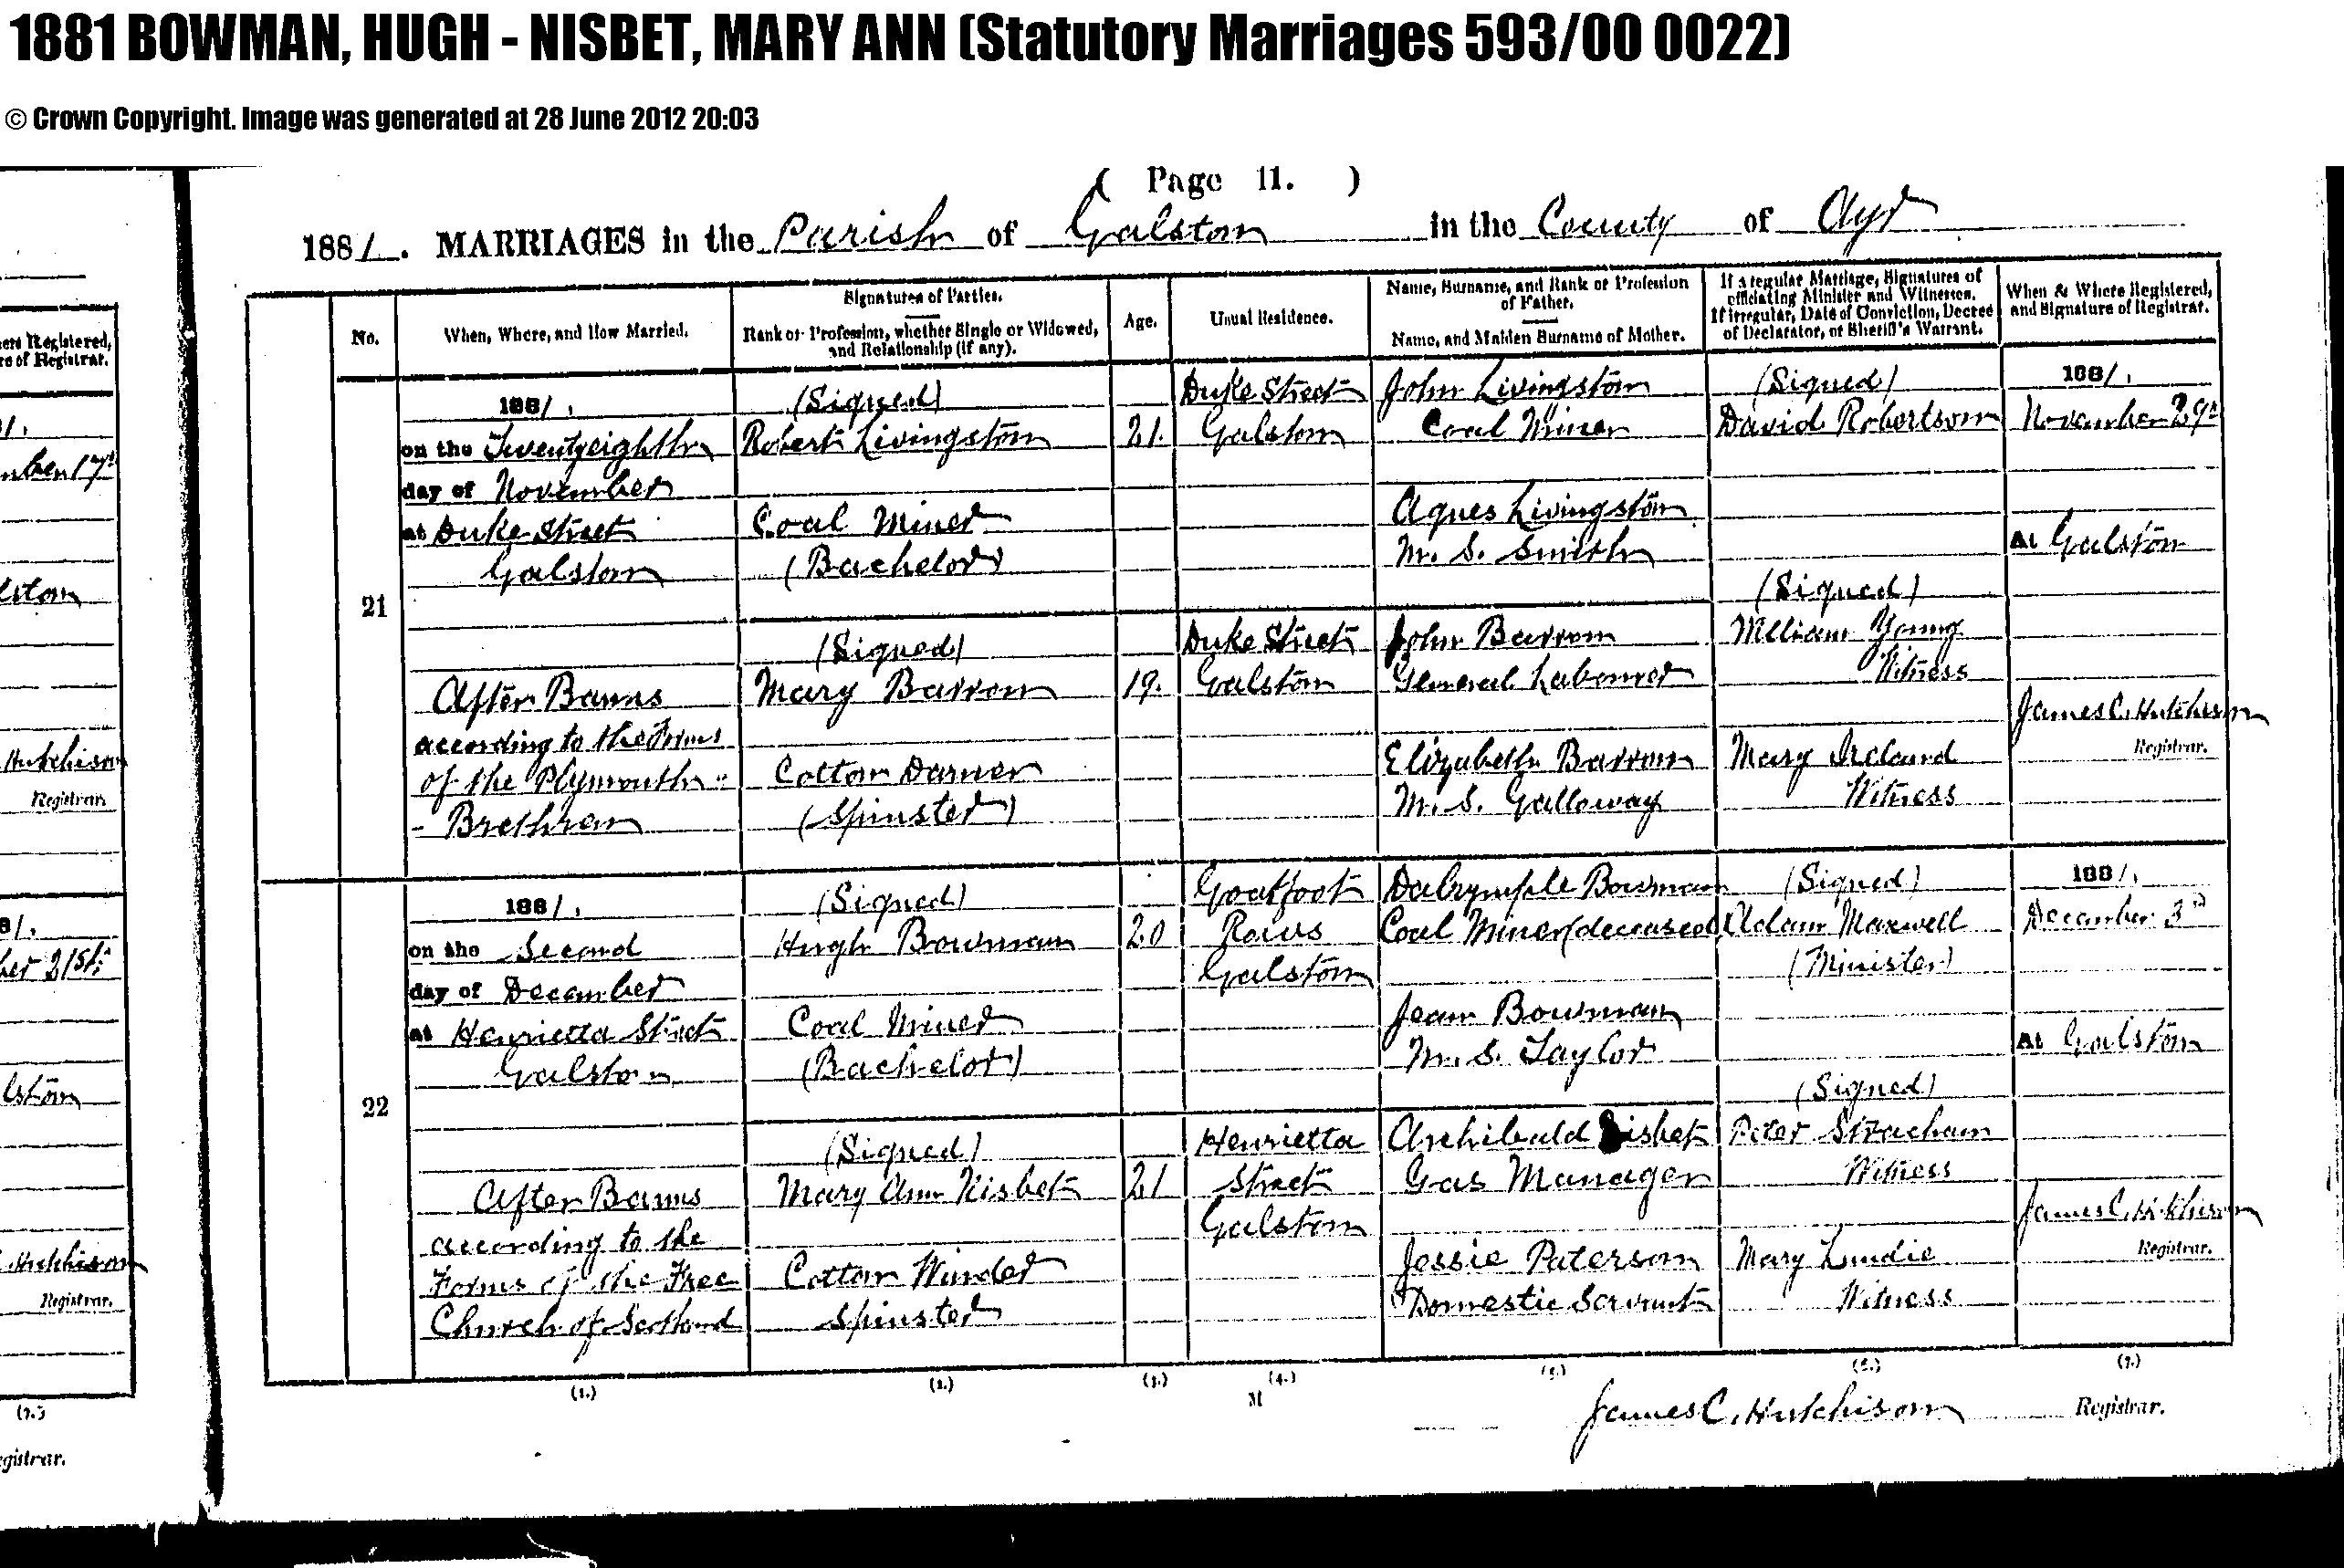 1881 BOWMAN, HUGH - NISBET, MARY ANN (Statutory Marriages 593/00 0022)
© Crown Copyright. Image was generated at 28 June 2012 20:03
( Page 11. )
1881. MARRIAGES in the Parish of Galston in the County of Ayr
No.
When, Where, and How Married.
Signatures of Parties.
Rank or Profession, whether Single or Widowed,
and Relationship (if any).
Age.
Usual Residence.
Name, Surname, and Rank or Profession
of Father.
Name, and Maiden Surname of Mother.
If a regular Marriage, Signatures of
officiating Minister and Witnesses.
If irregular, Date of Conviction, Decree
of Declarator, or Sheriff's Warrant.
When & Where Registered,
and Signature of Registrar.
21
1881.
on the Twentyeighth
day of November
at Duke Street
Galston
After Banns
according to the Forms
of the Plymouth
- Brethren
(Signed)
Robert Livingston
Coal Miner
(Bachelor)
(Signed)
Mary Barron
Cotton Darner
(Spinster)
21.
19.
Duke Street
Galston
Duke Street
Galston
John Livingston
Coal Miner
Agnes Livingston
M. S. Smith
John Barron
General Labourer
Elizabeth Barron
M. S. Galloway
(Signed)
David Robertson
(Signed)
William Young
Witness
Mary Ireland
Witness
1881.
November 29th
At Galston
James C. Hutchison
Registrar.
22
1881.
on the Second
day of December
at Henrietta Street
Galston
After Banns
according to the
Forms of the Free
Church of Scotland
(Signed)
Hugh Bowman
Coal Miner
(Bachelor)
(Signed)
Mary Ann Nisbet
Cotton Winder
Spinster
20
21
Goatfoot
Rows
Galston
Henrietta
Street
Galston
Dalrymple Bowman
Coal Miner (deceased)
Jean Bowman
M. S. Taylor
Archibald Nisbet
Gas Manager
Jessie Paterson
Domestic Servant
(Signed)
Adam Maxwell
(Minister)
(Signed)
Peter Strachan
Witness
Mary Lundie
Witness
1881.
December 3rd
At Galston
James C. Hutchison
Registrar.
(1.)
(2.)
(3.)
(4.)
(5.)
(6.)
(7.)
M
James C. Hutchison Registrar.